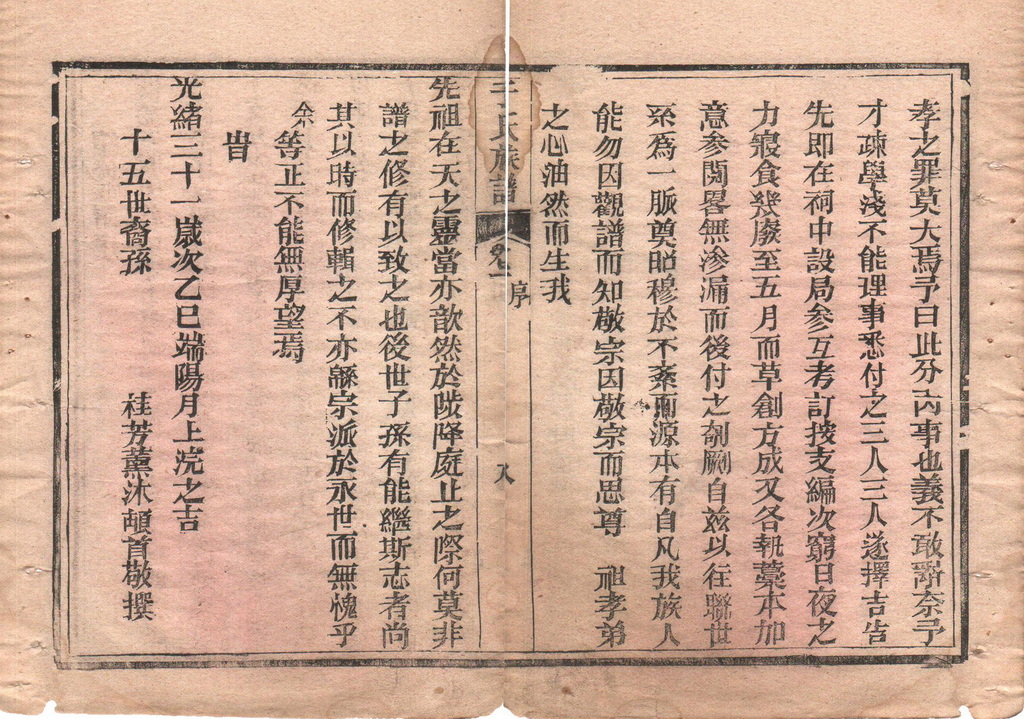 孝之罪莫大焉予曰此分內事也義不敢辭奈予
才疎學淺不能理事悉付之三人三人遂擇吉告
先即在祠中設局參互考訂按支編次窮日夜之
力寢食幾廢至五月而草創方成又各執藁本加
意參閱畧無滲漏而後付之剞劂自茲以往聯世
系為一脈奠昭穆於不紊而源本有自凡我族人
能勿因觀譜而知敬宗因敬宗而思尊 祖孝弟
之心油然而生我
氏族譜 卷一 序 八
先祖在天之靈當亦歆然於陟降庭止之際何莫非
譜之修有以致之也後世子孫有能繼斯志者尚
其以時而修輯之不亦緜宗派於永世而無愧乎
余等正不能無厚望焉
旹
光緒三十一歲次乙巳端陽月上浣之吉
十五世裔孫 桂芳薰沐頓首敬撰